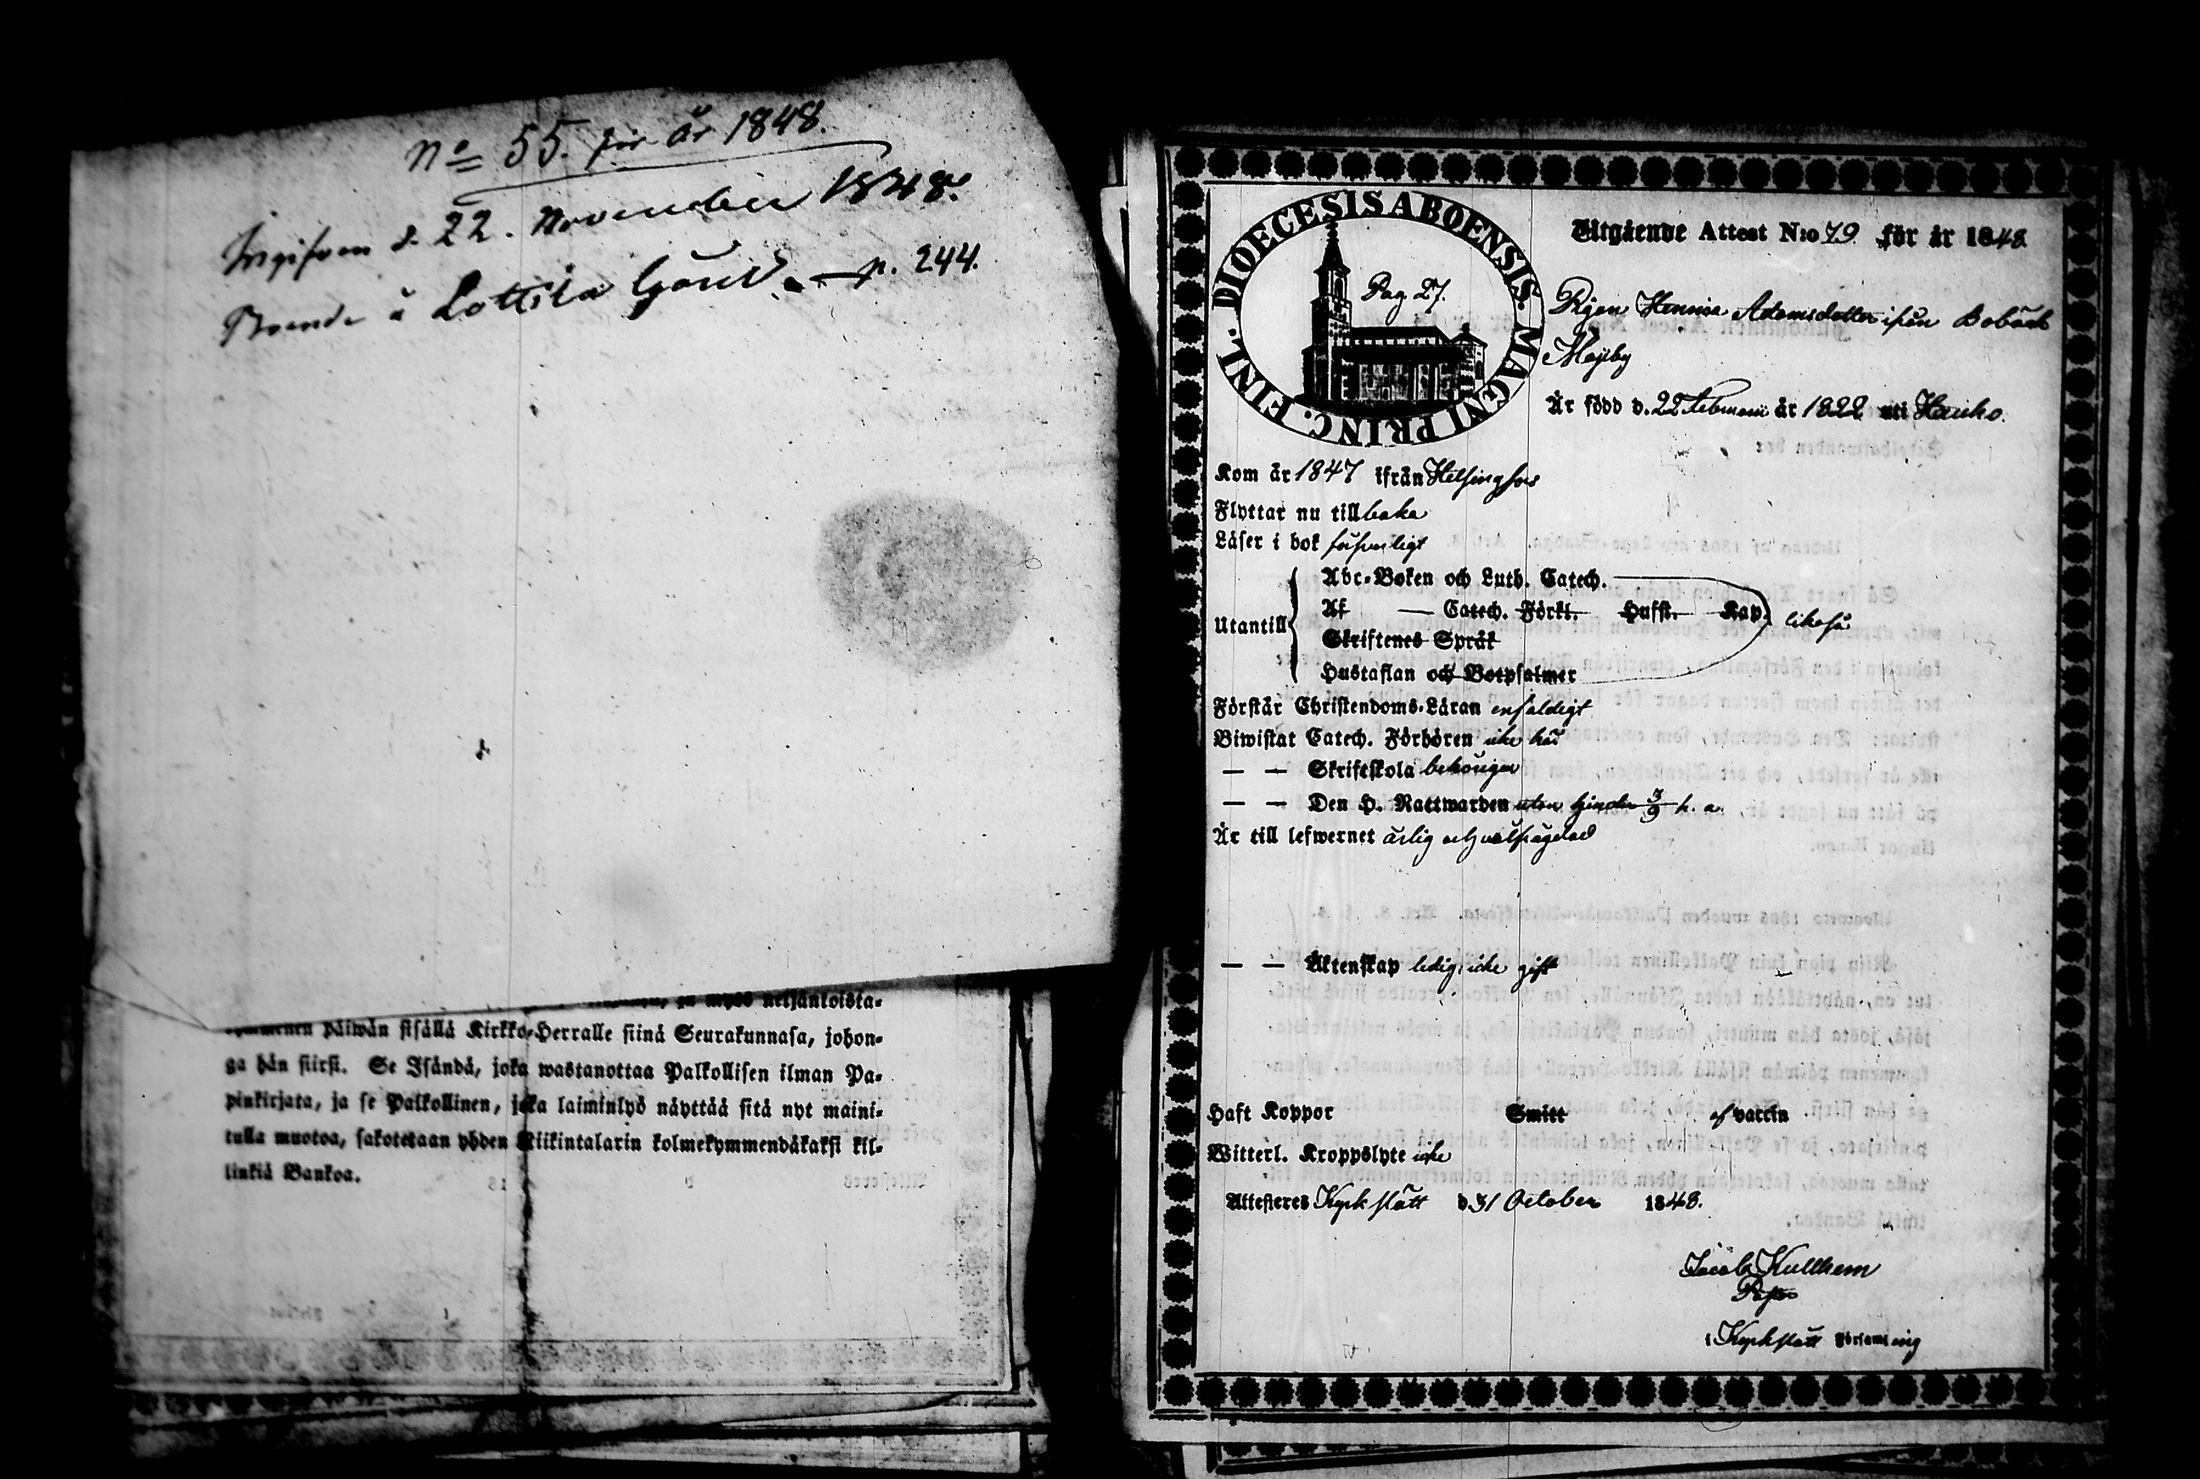 No 55. för år 1848.
Ingifven d. 22. November 1848.
Boende å Lottila Gård. — p. 244.
kymmenen päiwän sisällä Kirkko-Herralle siinä Seurakunnasa, johon-
ga hän siirsi. Se Isändä, joka wastanottaa Palkollisen ilman Pa-
pinkirjata, ja se Palkollinen, joka laiminlyö näyttää sitä nyt maini-
tulla muotoa, sakotetaan yhden Riikintalarin kolmekymmendäkaksi kil-
linkiä Bankoa.
DIOECESIS ABOENSIS. MAGNI PRINC. FINL.
Pag 27.
Utgående Attest N:o 79 för år 1848
Pigan Henrica Adamsdotter ifrån Bobäck
Är född d. 22 Februari år 1822 uti Hauho.
Kom år 1847 ifrån Helsingfors
Flyttar nu tillbaka
Läser i bok försvarligt
Utantill
Abc-Boken och Luth. Catech.
Af — Catech. Förkl. Hufst. Kap. likaså
Skriftenes Språk
Hustaflan och Botpsalmer
Förstår Christendoms-Läran enfaldigt
Biwistat Catech. Förhören icke här
— — Skriftskola behörigen
— — Den H. Nattwarden utan hinder 3/9 h. a.
Är till lefwernet ärlig och välfrägdad
— — Äktenskap ledig, icke gift
Haft Koppor Smitt af vaccin
Witterl. Kroppslyte icke
Attesteres Kyrkslätt d 31 October 1848.
Jacob Kullhem
Pastor
i Kyrkslätt Församling